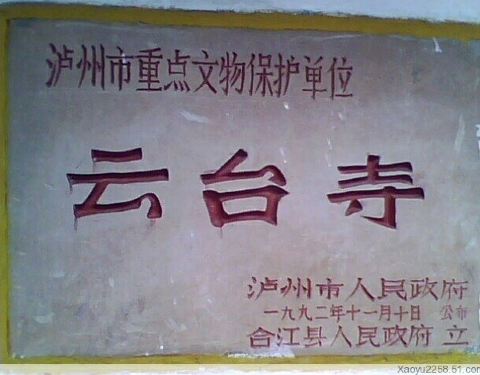 泸州市重点文物保护单位
云台寺
泸州市人民政府
一九九二年十一月十日 公布
合江县人民政府 立
Xaoyu2258.51.com